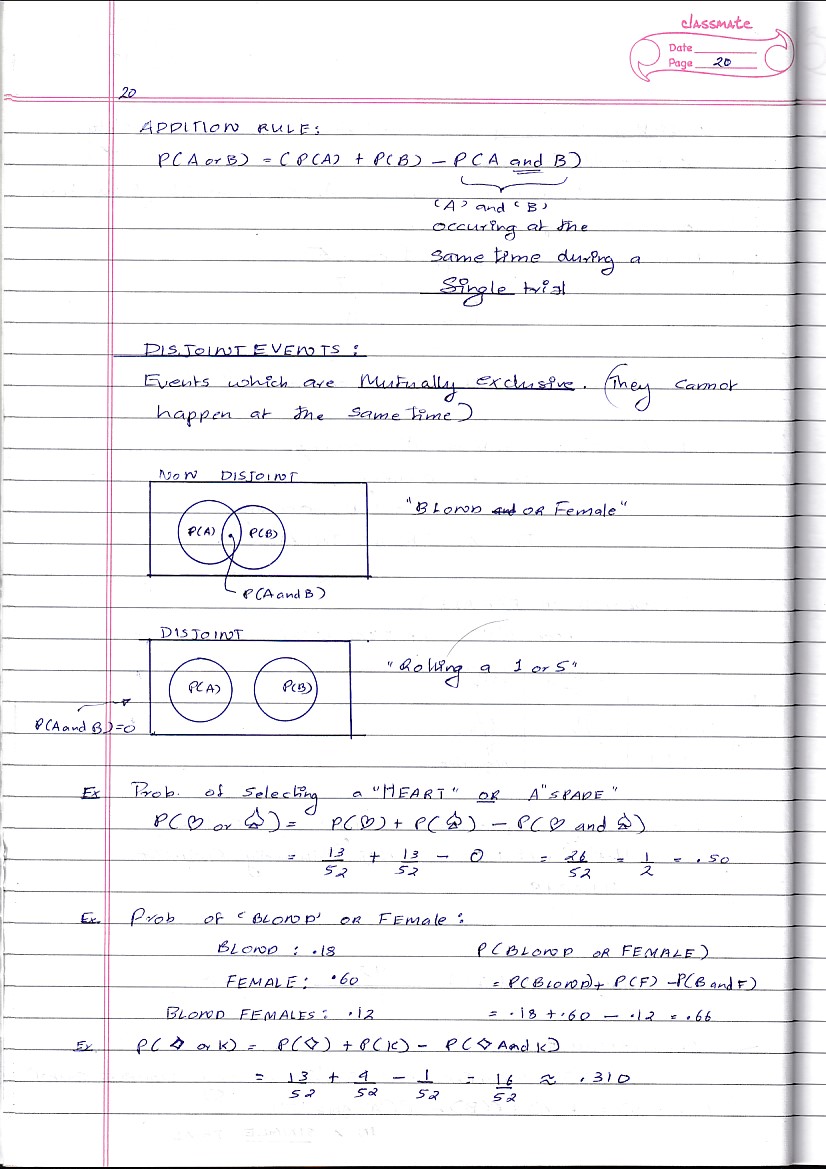 classmate
Date
Page 20
20
ADDITION RULE:
P(A or B) = (P(A) + P(B) - P(A and B)
'A' and 'B'
occuring at the
same time during a
Single trial
DISJOINT EVENTS:
Events which are Mutually exclusive. (They cannot
happen at the same time)
NON DISJOINT
P(A) P(B)
"BLOND and OR Female"
P(A and B)
DISJOINT
P(A) P(B)
"Rolling a 1 or 5"
P(A and B)=0
Ex Prob. of selecting a "HEART" OR A "SPADE"
P(♡ or ♤) = P(♡) + P(♤) - P(♡ and ♤)
= 13/52 + 13/52 - 0 = 26/52 = 1/2 = .50
Ex. Prob of 'BLOND' OR Female:
BLOND : .18 P(BLOND OR FEMALE)
FEMALE: .60 = P(Blond) + P(F) - P(B and F)
BLOND FEMALES: .12 = .18 + .60 - .12 = .66
Ex P(♢ or K) = P(♢) + P(K) - P(♢ And K)
= 13/52 + 4/52 - 1/52 = 16/52 ≈ .310